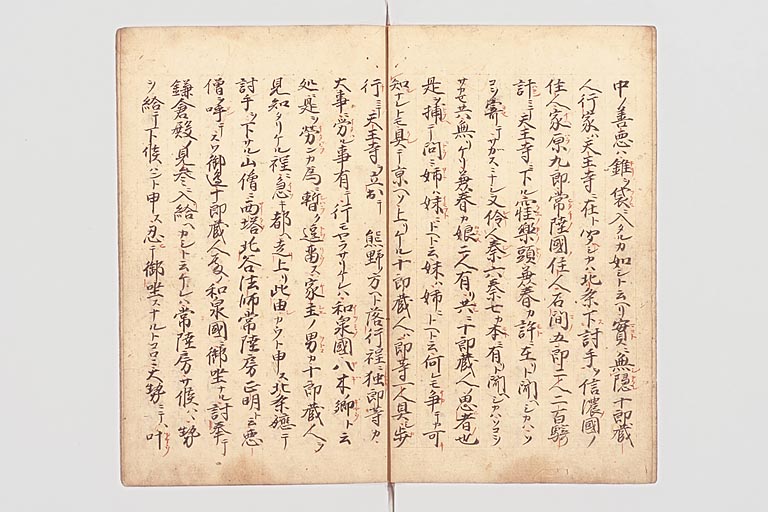 中ノ善悪ハ錐ヲ袋ニ入タルカ如シト云ヘリ實ニ無隠十郎蔵
人行家ハ天王寺ニ在ト聞シカハ北条下討手ヲ信濃國ノ
住人家原九郎常陸國住人石間五郎二人二百騎
計ニテ天王寺ニ下ル窪樂頭兼春カ許ニ在ト聞ヘシカハソ
コニ寄テサカスニナシ又伶人秦六秦七カ本ニ有ト聞ヘシカハソコヲ
サカセ共無リケリ兼春カ娘二人有リ共ニ十郎蔵人ノ思者也
是ヲ捕テ問ニ姉ハ妹ニトヘト云妹ハ姉ニトヘト云何レモ争テカ可
知ナレ共具テ京ヘソ上リケル十郎蔵人ハ郎等一人具ノ歩
行ニテ天王寺ヲ立出テ熊野ノ方ヘト落行程ニ独郎等カ
大事ニ労ル事有テ行モヤラサリケレハ和泉國八木郷ト云
処ニ是ヲ労ンカ為ニ暫ク逗留ス家主ノ男カ十郎蔵人ヲ
見知タリケル程ニ急キ都ヘ走上リ此由カクト申ス北条悪テ
討手ヲ下サル山僧ニ西塔北谷法師常陸房正明ト云悪
僧ヲ呼テスワ御邊十郎蔵人殿ノ和泉國ニ御坐ナル討奉テ
鎌倉殿ノ見参ニ入給ヘカシト云ケレハ常陸房サ候ハヽ勢
ヲ給テ下候ハント申ス忍テ御坐スナルトコロニ大勢ニテハ叶